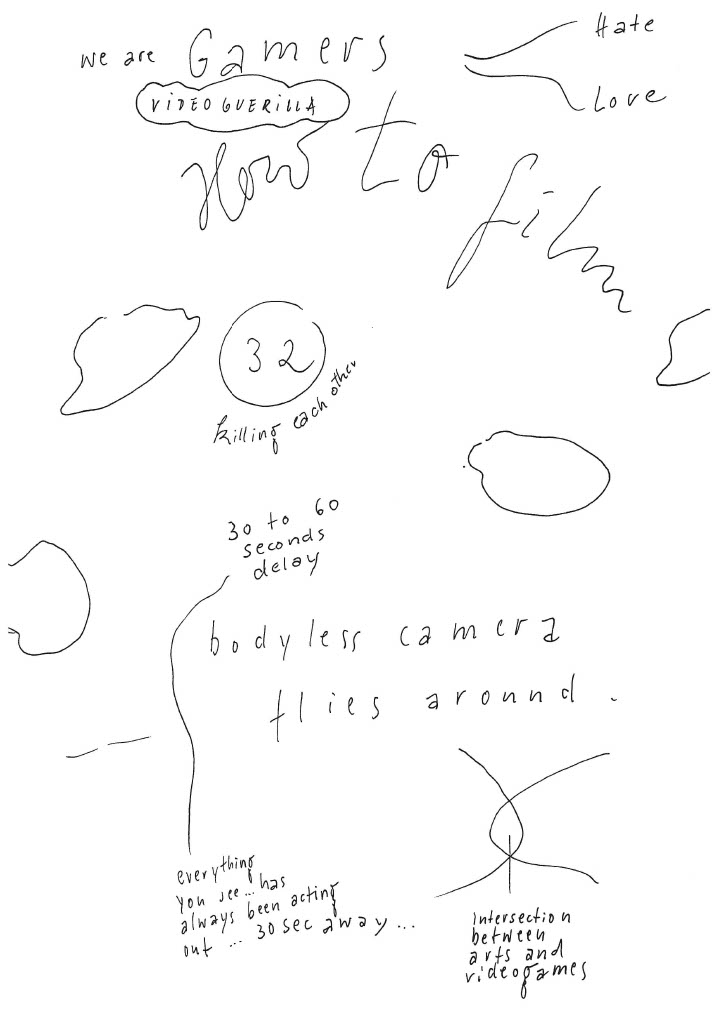 we are Gamers
Hate
Love
VIDEOGUERILLA
How to film
32
killing each other
30 to 60
seconds
delay
bodyless camera
flies around.
everything
you see... has
always been acting
out ... 30 sec away ...
Intersection
between
arts and
videogames